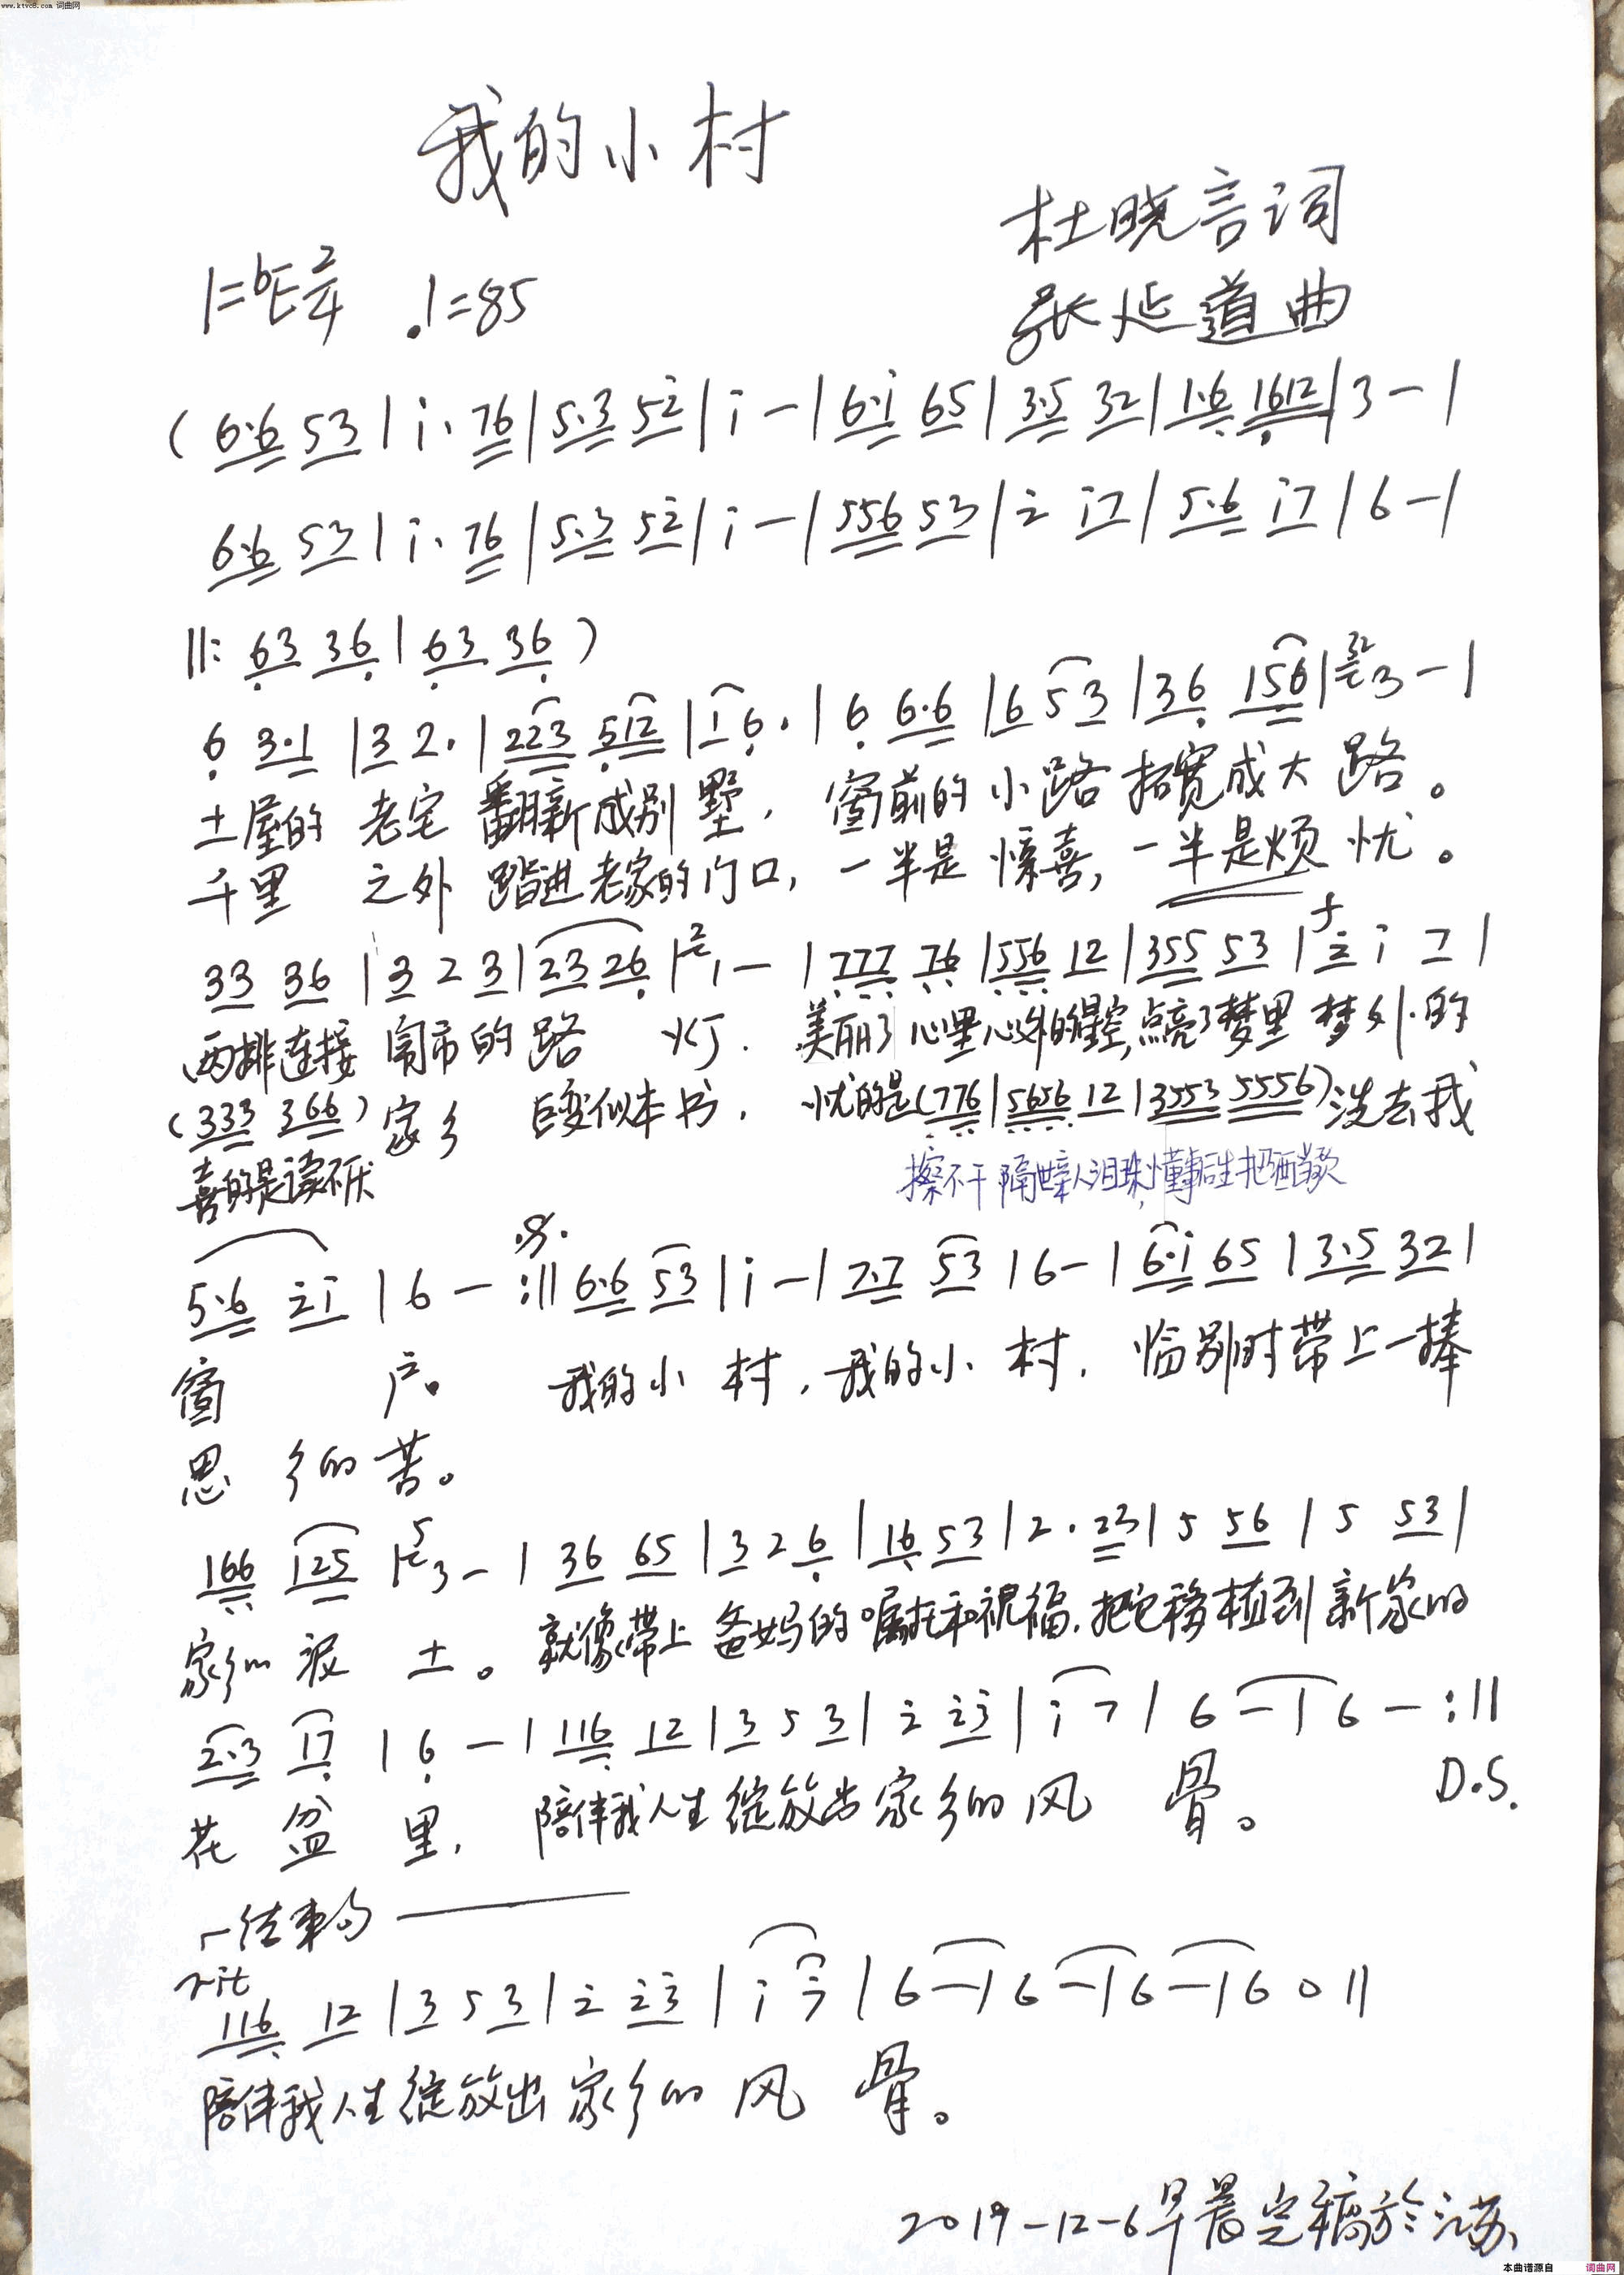 www.ktvc8.com 词曲网
我的小村
杜晓言词
1=bE 2/4 ♩=85
张延道曲
(6·6 53|i· 76|5·3 52|i-|6·i 65|3·5 32|1·6 1612|3-|
6·6 53|i· 76|5·3 52|i-|556 53|2 i7|5·6 i7|6-|
||: 63 36|63 36)
6 3·1|3 2·|223 512|1 6·|6 6·6|6 5 3|36 156|32 3-|
土屋的 老宅 翻新成别墅， 窗前的小路 拓宽成大路。
千里 之外 踏进老家的门口，一半是惊喜，一半是烦忧。
33 36|3 2 3|23 26|2 1-|777 76|556 12|355 53|2 i 7|
两排连接 闹市的路 灯. 美丽了心里心外的星空,点亮了梦里梦外的
(333 366) 家乡 巨变似本书， 忧的是(776|5656 12|3553 5556)洗去我
喜的是读不厌 擦不干隔世亲人泪珠,懂事后生把酒当歌
5·6 2i|6-:||6·6 53|i-|7·7 53|6-|6·i 65|3·5 32|
窗 户。 我的小 村，我的小 村， 临别时带上一捧
思 乡的苦。
166 125|5 3-|36 65|3 2 6|16 53|2· 23|5 56|5 53|
家乡的泥 土。 就像带上 爸妈的嘱托和祝福，把它移植到新家的
2·3 17|6-|116 12|3 5 3|2 23|i 7|6-|6-:||
花 盆 里， 陪伴我人生 绽放出家乡的风 骨。 D.S.
结束句
rit
116 12|3 5 3|2 23|i 7|6-|6-|6-|6 0||
陪伴我人生绽放出家乡的 风 骨。
2019-12-6早晨完稿於江苏
本曲谱源自 词曲网